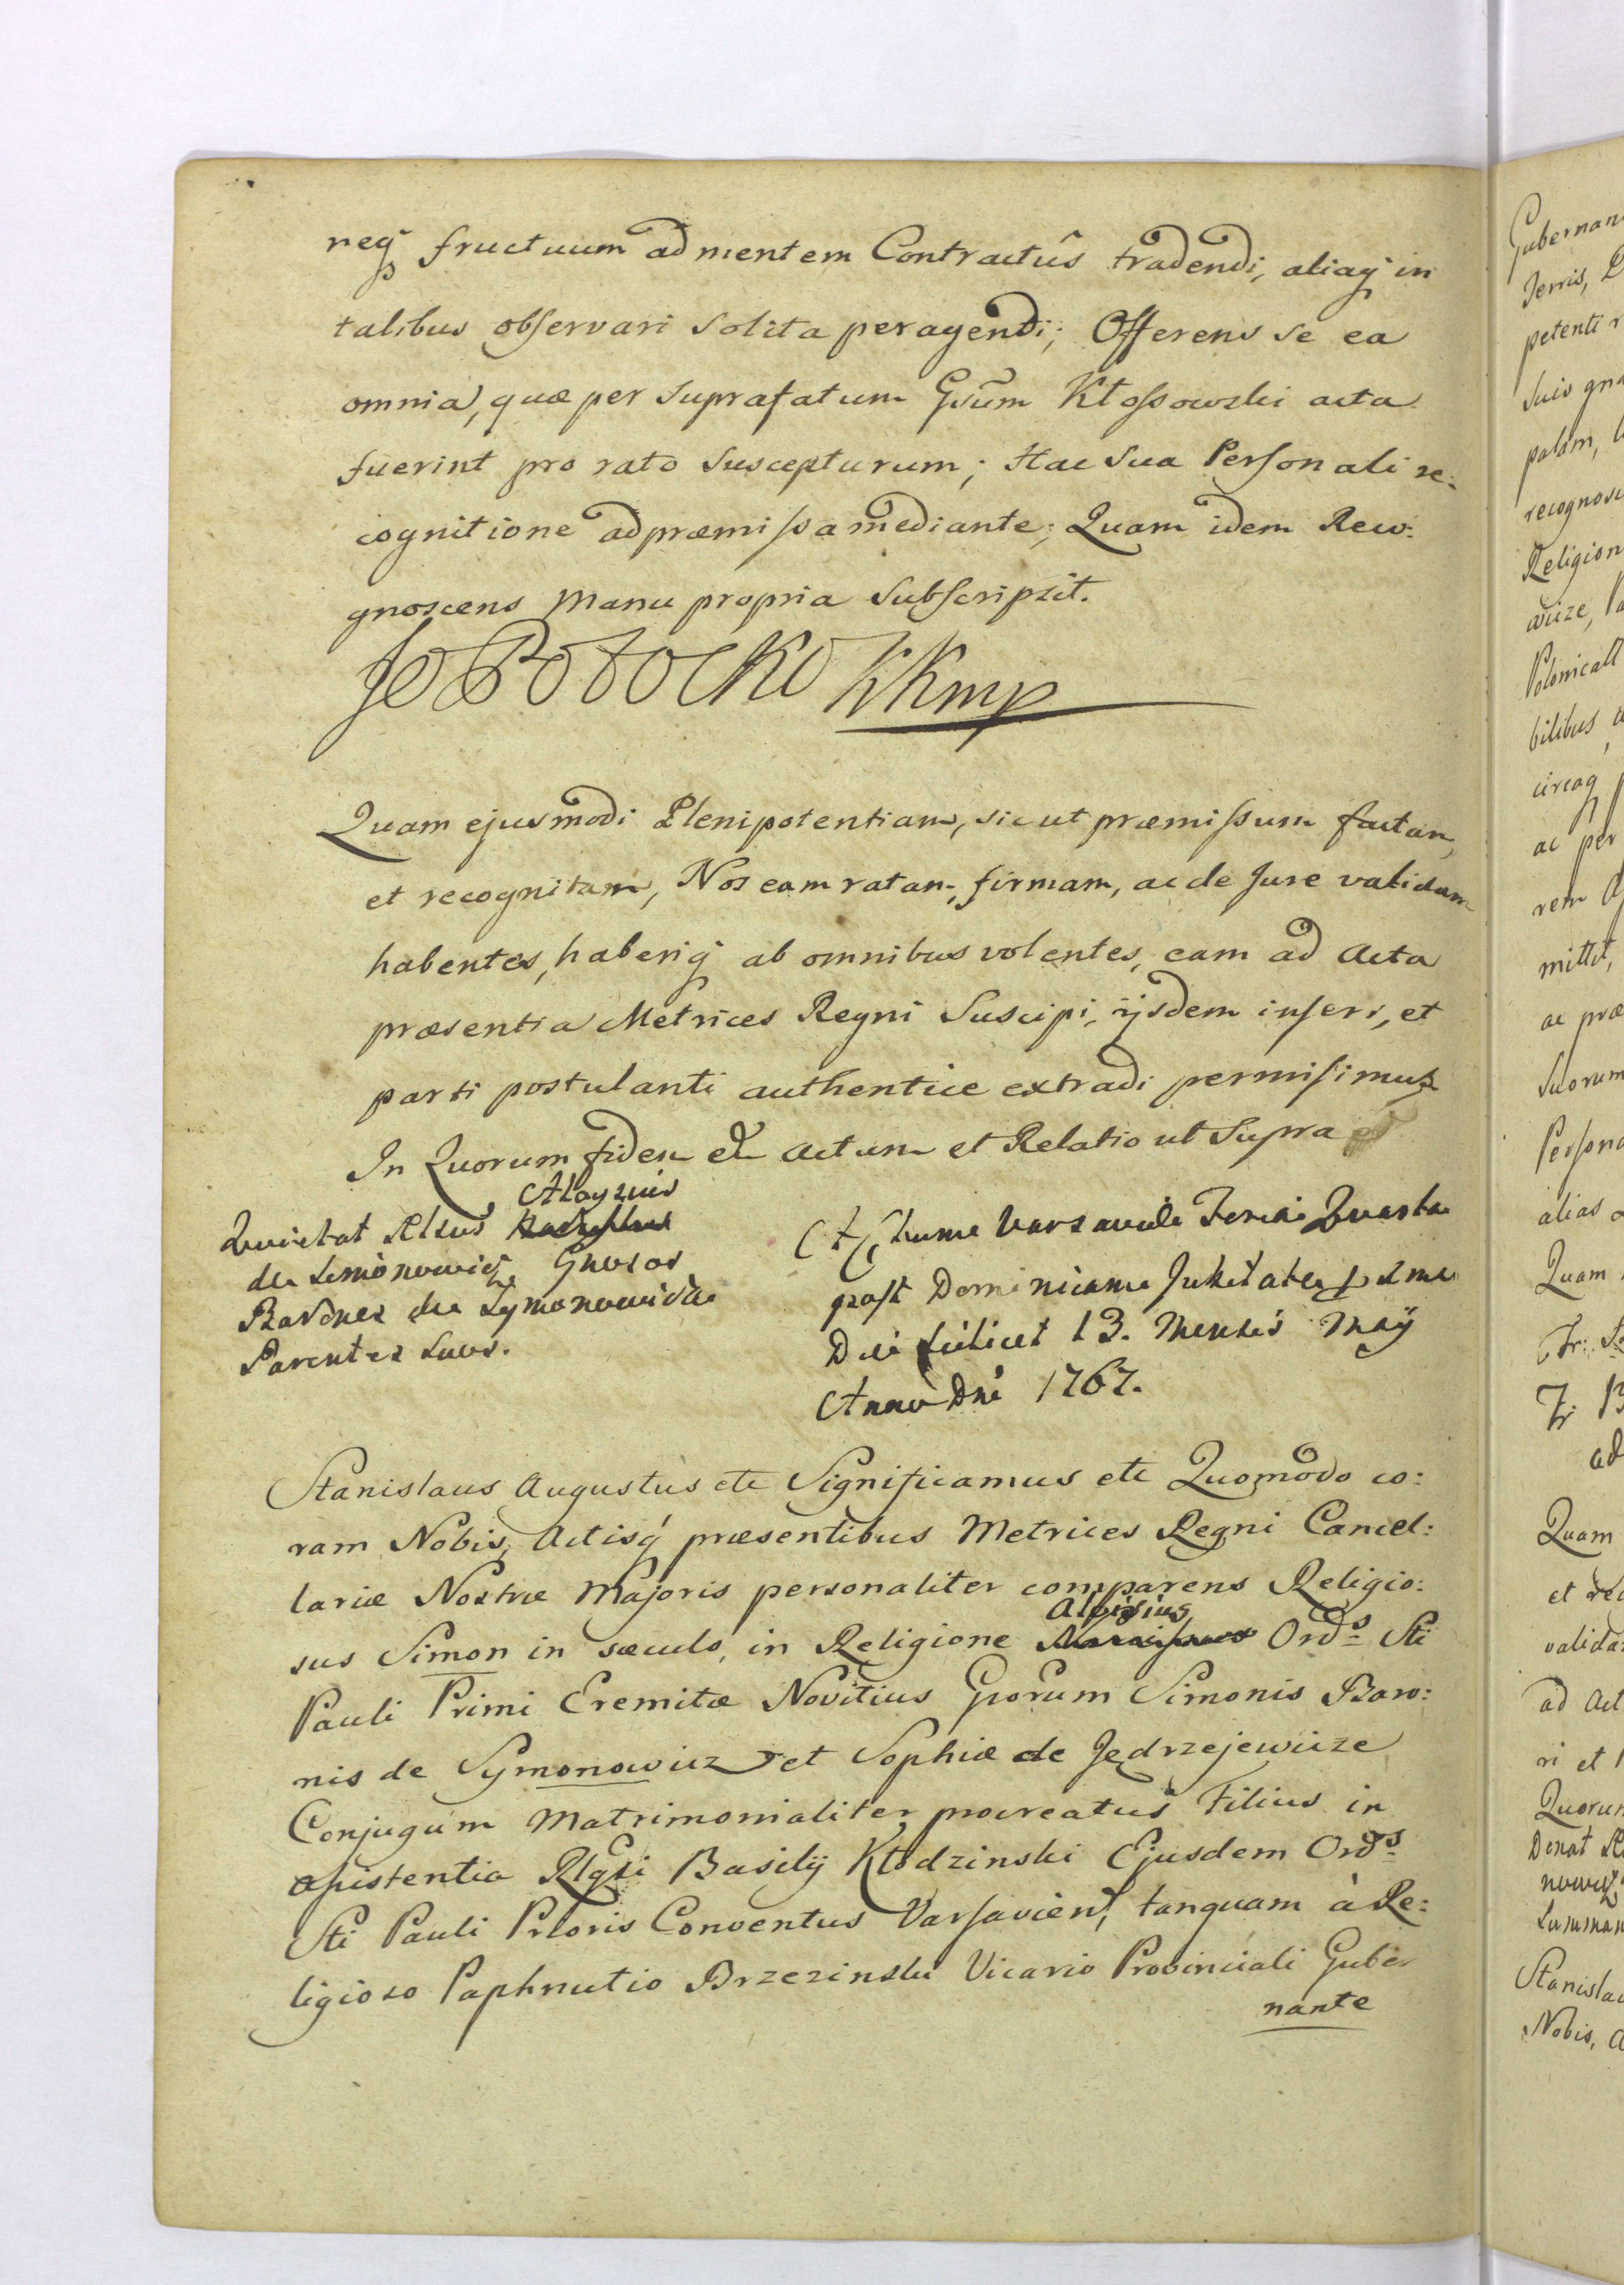 req fructuum ad mentem Contractûs tradendi, aliaq in
talibus observari solita peragendi; Offerens se ea
omnia, quæ per suprafatum Gsum Kłossowski acta
fuerint pro rato suscepturum; Hac sua Personali re:
cognitione ad præmissa mediante; Quam idem Reco:
gnoscens Manu propria Subscripsit.
Potocki KKmp
Quam ejusmodi Plenipotentiam, sicut præmissum factam,
et recognitam, Nos eam ratam, firmam, ac de Jure validam
habentes, haberiq ab omnibus volentes, eam ad Acta
præsentia Metrices Regni Suscipi, ijsdem inseri, et
parti postulanti authentice extradi permisimus
In Quorum fidem etc Actum et Relatio ut Supra
Aloyzius
Quietat Rlsus
de Simonowicz Gnosos
Barones de Szymonowicze
Parentes Suos.
Actum Varsaviæ Feria Quarta
post Dominicam Jubilate pxma
Die scilicet 13. Mensis Maÿ
Anno Dni 1767.
Stanislaus Augustus etc Significamus etc Quomodo co:
ram Nobis, Actisq præsentibus Metrices Regni Cancel:
lariæ Nostræ Majoris personaliter comparens Religio:
Aloisius
sus Simon in sæculo, in Religione Ord̃s Sti
Pauli Primi Eremitæ Novitius Gsorum Simonis Baro:
nis de Symonowicz et Sophiæ de Jędrzejewicze
Conjugum Matrimonialiter procreatus Filius in
assistentia Rlgsi Basilij Kłodzinski Ejusdem Ord̃s
Sti Pauli Prioris Conventus Varsavien, tanquam à Re:
ligioso Paphnutio Brzezinski Vicario Provinciali Guber
nante
Gubernan
Terris,
petenti
Suis
palam,
recognosc
Religion
wicze,
Polonicall
bilibus
circaq
ac per
rem
mittit,
ac præ
Suorum
Person
alias
Quam
ad
Quam
et rec
valida
ad Act
ri et
Quorum
Donat
Summam
Stanisla
Nobis,